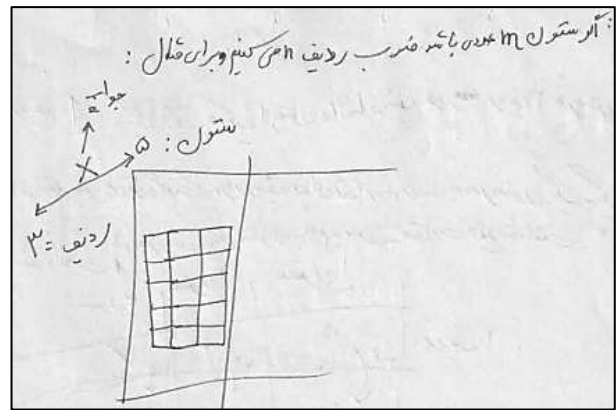 : اگر ستون m عددی باشد ضرب ردیف n می کنیم و برای مثال :
جواب
ستون : ۵
×
ردیف = ۳